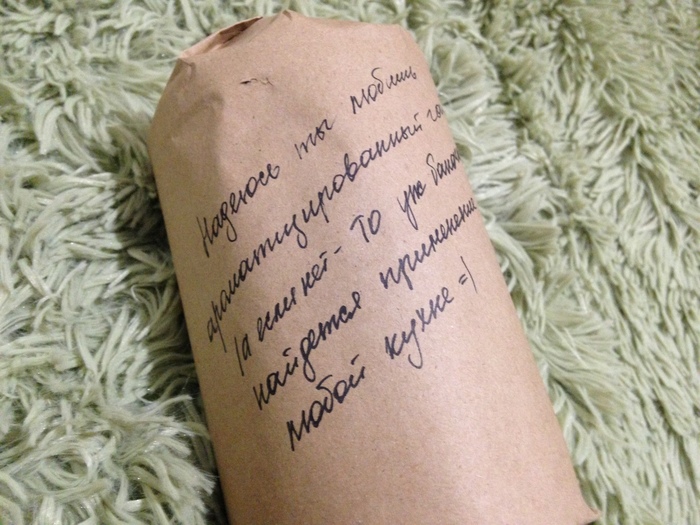 Надеюсь ты любишь
ароматизированный
/а если нет - то уж
найдется применение
любой кухне =)